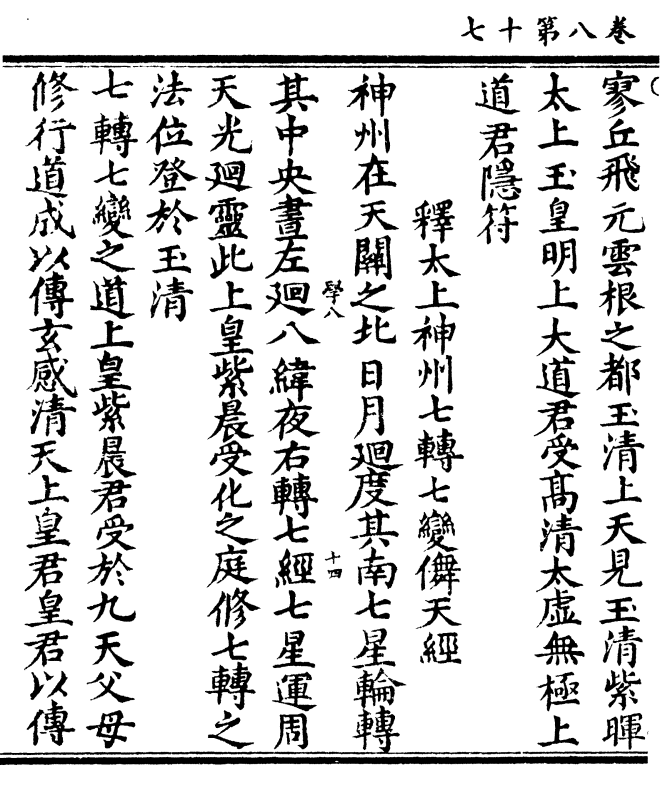 七十第八卷
寥丘飛元雲根之都玉清上天見玉清紫暉
太上玉皇明上大道君受髙清太虛無極上
道君隱符
釋太上神州七轉七變儛天經
神州在天關之北日月廻度其南七星輪轉
學八
十四
其中央晝左廻八緯夜右轉七經七星運周
天光廻靈此上皇紫晨受化之庭修七轉之
法位登於玉清
七轉七變之道上皇紫晨君受於九天父母
修行道成以傳玄感清天上皇君皇君以傳